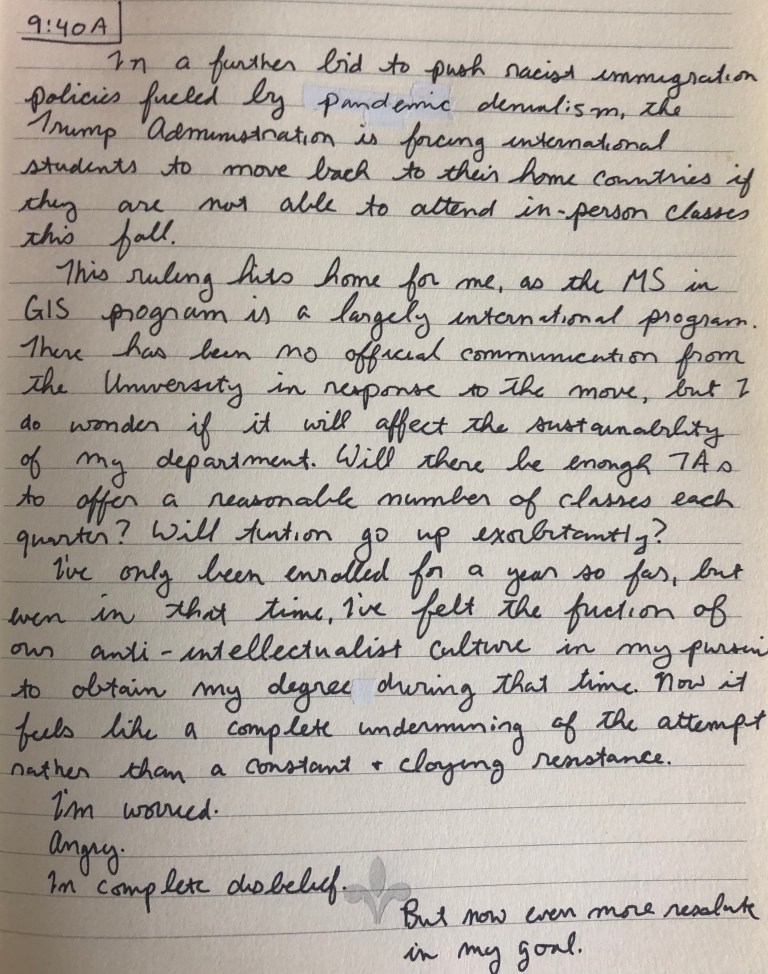 9:40A
In a further bid to push racist immigration
policies fueled by pandemic denialism, the
Trump Administration is forcing international
students to move back to their home countries if
they are not able to attend in-person classes
this fall.
This ruling hits home for me, as the MS in
GIS program is a largely international program.
There has been no official communication from
the University in response to the move, but I
do wonder if it will affect the sustainability
of my department. Will there be enough TAs
to offer a reasonable number of classes each
quarter? Will tuition go up exorbitantly?
I've only been enrolled for a year so far, but
even in that time, I've felt the friction of
our anti-intellectualist culture in my pursui
to obtain my degree during that time. Now it
feels like a complete undermining of the attempt
rather than a constant + cloying resistance.
I'm worried.
Angry.
In complete disbelief.
But now even more resolute
in my goal.